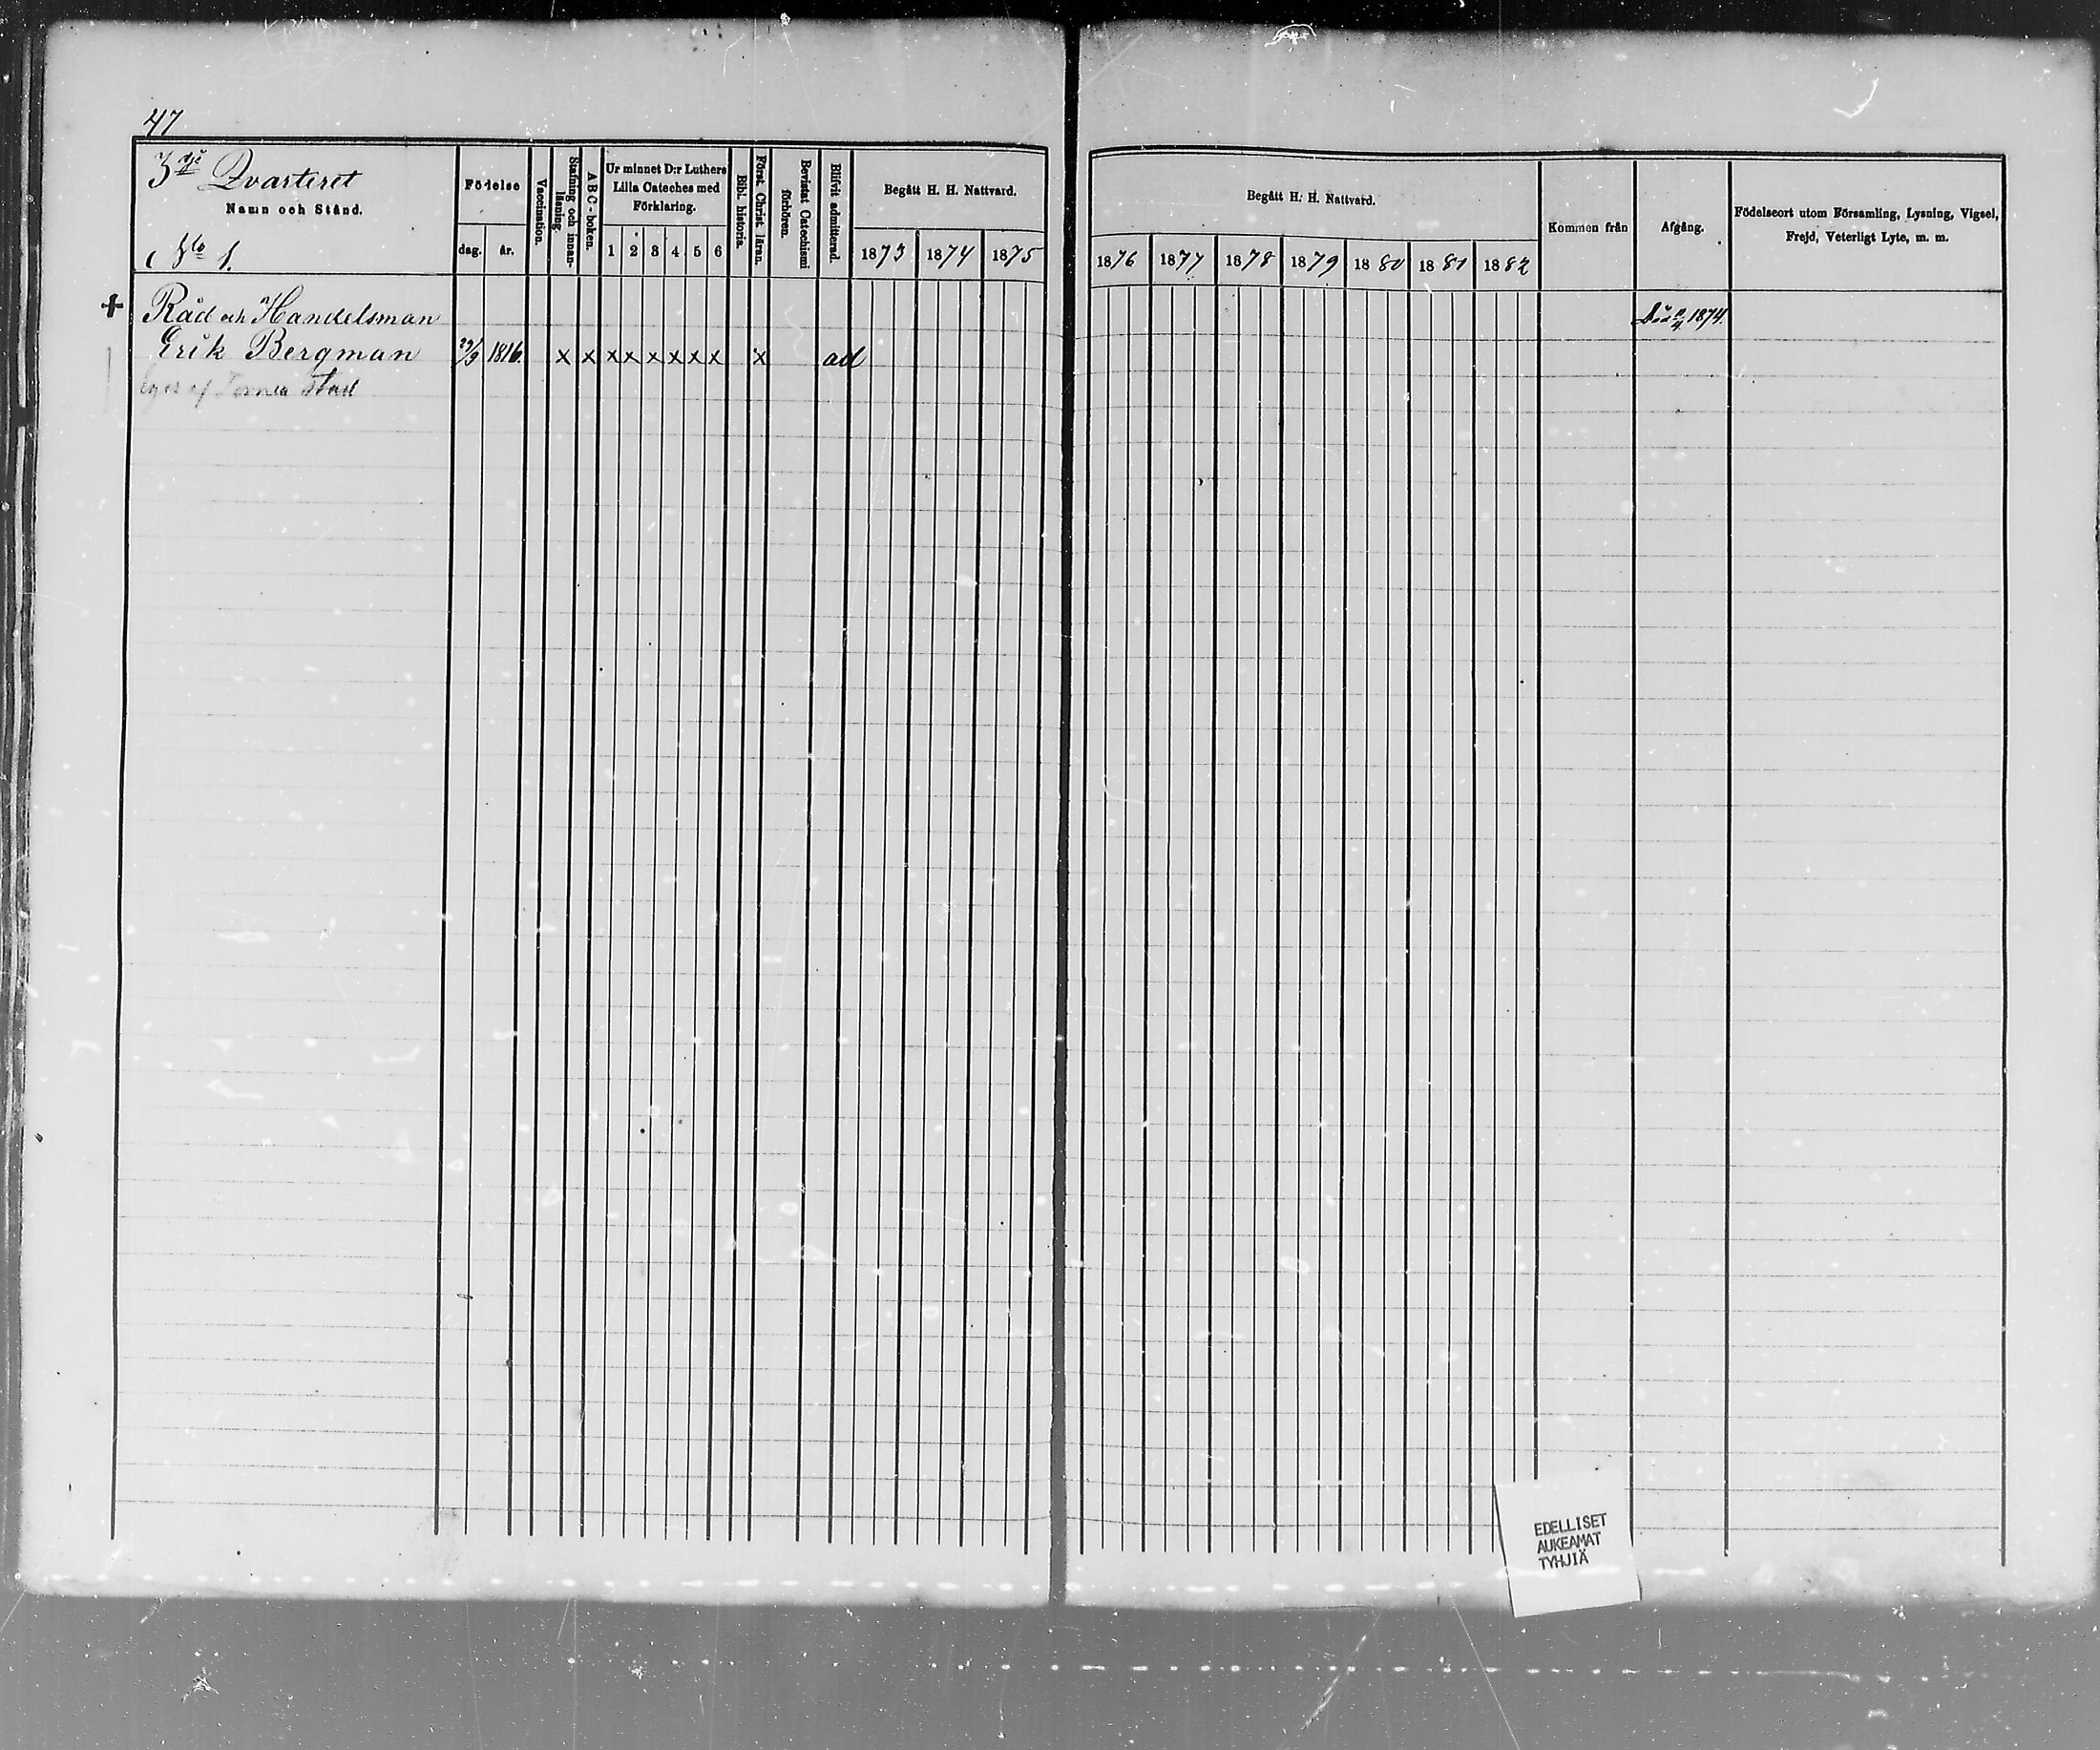 47
3dje Qvarteret
Namn och Stånd.
No 1.
Födelse
dag. år.
Vaccination.
Stafning och innan-
läsning.
A B C - boken.
Ur minnet D:r Luthers
Lilla Cateches med
Förklaring.
1 2 3 4 5 6
Bibl. historia.
Först. Christ. läran.
Bevistat Catechismi
förhören.
Blifvit admitterad.
Begått H. H. Nattvard.
1873 1874 1875
Begått H. H. Nattvard.
1876 1877 1878 1879 1880 1881 1882
Kommen från
Afgång.
Födelseort utom Församling, Lysning, Vigsel,
Frejd, Veterligt Lyte, m. m.
+ Råd och Handelsman 1874.
Erik Bergman 29/9 1816. x x x x x x x x x ad
Torneå Stad
EDELLISET
AUKEAMAT
TYHJIÄ